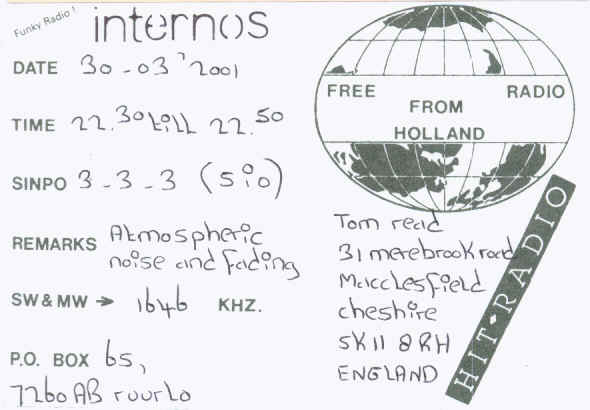 Funky Radio!
internos
DATE 30-03'2001
TIME 22.30 till 22.50
SINPO 3-3-3 (sio)
REMARKS Atmospheric
noise and fading
SW & MW → 1646 KHZ.
P.O. BOX 65,
7260 AB ruurlo
FREE RADIO
FROM
HOLLAND
Tom read
31 merebrook road
Macclesfield
cheshire
SK11 8RH
ENGLAND
HIT♦RADIO